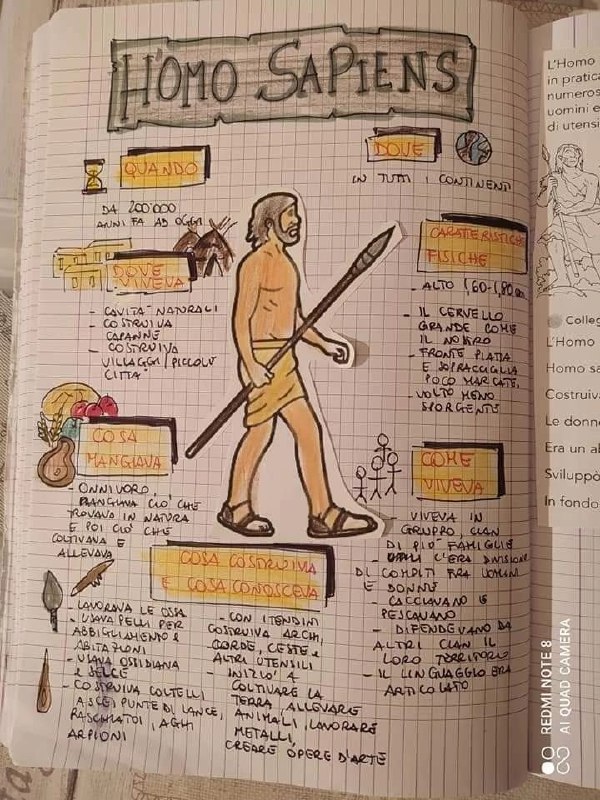 HOMO SAPIENS
QUANDO
DA 200'000
ANNI FA AD OGGI
DOVE
IN TUTTI I CONTINENTI
DOVE
VIVEVA
- CAVITA' NATURALI
- COSTRUIVA
CAPANNE
- COSTRUIVA
VILLAGGI/PICCOLE
CITTA'
CARATTERISTICHE
FISICHE
- ALTO 1,60-1,80 cm
- IL CERVELLO
GRANDE COME
IL NOSTRO
- FRONTE PIATTA
E SOPRACCIGLIA
POCO MARCATE,
VOLTO MENO
SPORGENTE
COSA
MANGIAVA
- ONNIVORO,
MANGIAVA CIO' CHE
TROVAVA IN NATURA
E POI CIO' CHE
COLTIVAVA E
ALLEVAVA
COME
VIVEVA
VIVEVA IN
GRUPPO, CLAN
DI PIU' FAMIGLIE
- C'ERA DIVISIONE
DI COMPITI FRA UOMINI
E DONNE
- CACCIAVANO E
PESCAVANO
- DIFENDEVANO DA
ALTRI CLAN IL
LORO TERRITORIO
- IL LINGUAGGIO ERA
ARTICOLATO
COSA COSTRUIVA
E COSA CONOSCEVA
- LAVORAVA LE OSSA
- USAVA PELLI PER
ABBIGLIAMENTO E
ABITAZIONI
- USAVA OSSIDIANA
E SELCE
- COSTRUIVA COLTELLI
ASCE, PUNTE DI LANCE,
RASCHIATOI, AGHI
ARPIONI
- CON I TENDINI
COSTRUIVA ARCHI,
CORDE, CESTE E
ALTRI UTENSILI
- INIZIO' A
COLTIVARE LA
TERRA, ALLEVARE
ANIMALI, LAVORARE
METALLI,
CREARE OPERE D'ARTE
L'Homo
in pratica
numeros
uomini e
di utensi
Colleg
L'Homo
Homo sa
Costruiva
Le donne
Era un ab
Sviluppò
In fondo
REDMI NOTE 8
AI QUAD CAMERA